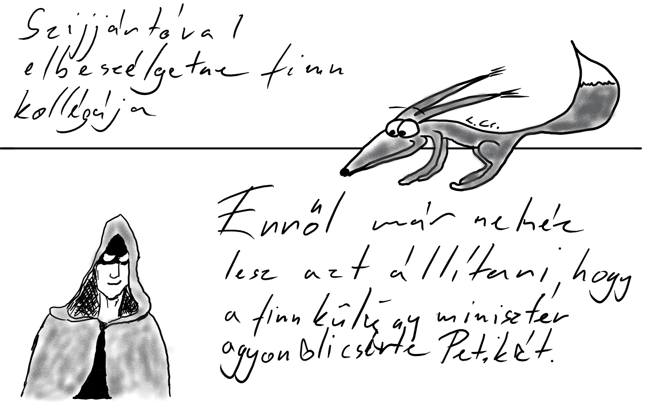 Szijjártóval
elbeszélgetne finn
kollégája
S.Cr.
Enről már nehéz
lesz azt állítani, hogy
a finn külügyminiszter
agyondicsérte Petikét.